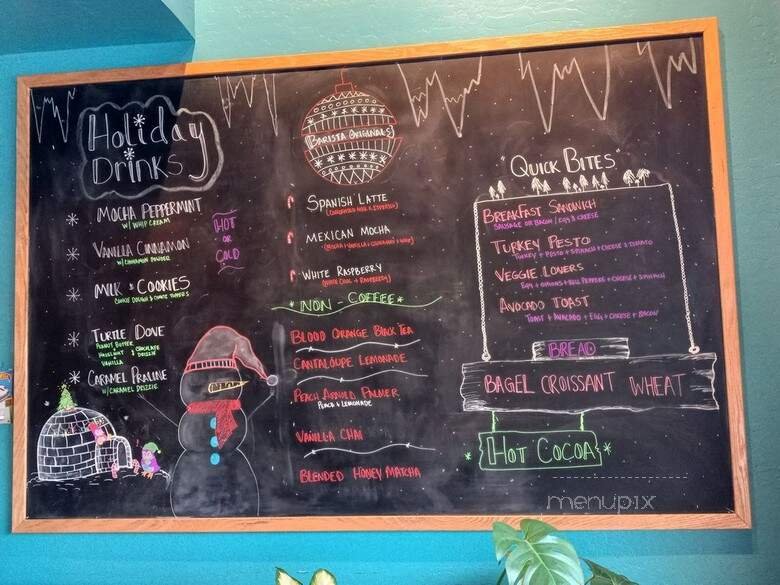 Holiday
Drinks
Mocha Peppermint
w/ Whip Cream
Vanilla Cinnamon
w/ Cinnamon Powder
Milk & Cookies
Cookie Dough & Cookie Toppers
Turtle Dove
Peanut Butter
Hazelnut
Vanilla
& Chocolate
Drizzle
Caramel Praline
w/ Caramel Drizzle
Hot
or
Cold
Barista Originals
Spanish Latte
(Condensed Milk & Espresso)
Mexican Mocha
(Mocha + Vanilla + Cinnamon +
White Raspberry
(White Choc + Raspberry)
* Non-Coffee *
Blood Orange Black Tea
Cantaloupe Lemonade
Peach Arnold Palmer
Peach & Lemonade
Vanilla Chai
Blended Honey Matcha
"Quick Bites"
Breakfast Sandwich
Sausage or Bacon / Egg & Cheese
Turkey Pesto
Turkey + Pesto + Spinach + Cheese & Tomato
Veggie Lovers
Egg + Onions + Bell Peppers + Cheese + Spinach
Avocado Toast
Toast + Avacado + Egg + Cheese + Bacon
Bread
Bagel Croissant Wheat
* Hot Cocoa *
menupix